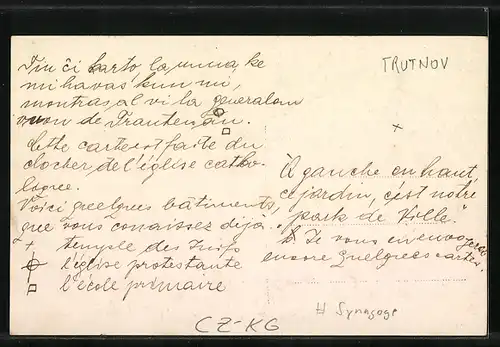 Tiu ĉi karto, la unua, ke
mi havas kun mi,
montras al vi la generalan
vuon de Trautenau.
Cette carte est faite du
clocher de l'église catho-
lique.
Voici quelques bâtiments,
que vous connaissez déjà.
+ temple des Juifs
l'église protestante
l'école primaire
TRUTNOV
+
"A gauche en haut,
ce jardin, c'est notre
park de Ville."
Je vous envoy
encore quelques cartes.
# Synagoge
CZ-KG